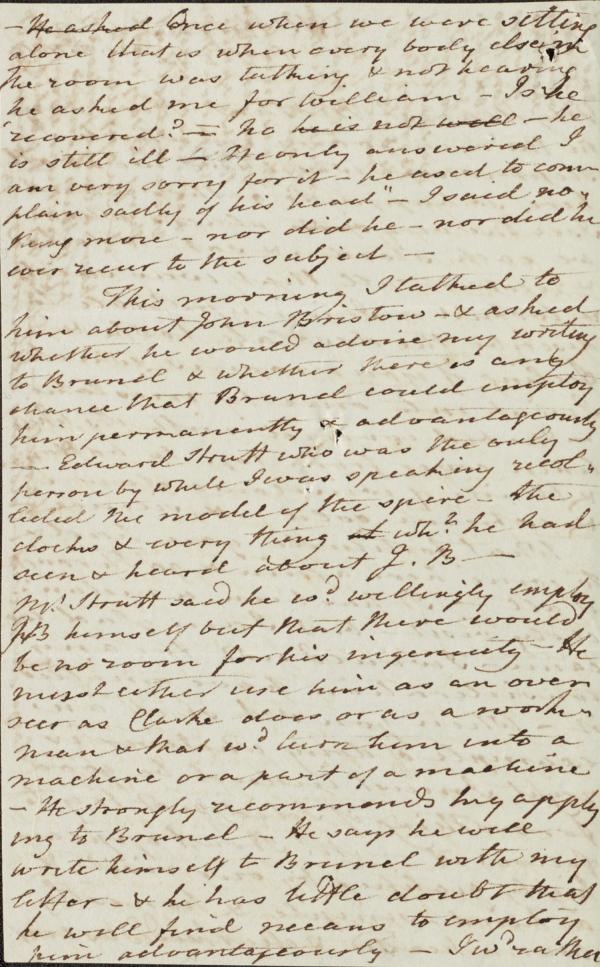 – He asked Once when we were sitting
alone that is when every body else in
the room was talking & not hearing
he asked me for William – Is he
recovered? – No he is not well – he
is still ill – He only answered I
am very sorry for it – he used to com
plain sadly of his head" – I said no„
thing more – nor did he – nor did he
ever recur to the subject –
This morning I talked to
him about John Bristow – & asked
whether he would advise my writing
to Brunel & whether there is any
chance that Brunel could employ
him permanently & advantageously
– Edward Strutt who was the only
person by while I was speaking recol„
lected the model of the spire – the
clocks & every thing wh? he had
seen & heard about J. B –
Mr Strutt said he wd willingly employ
JB himself but that there would
be no room for his ingenuity – He
must either use him as an over
seer as Clarke does or as a work„
man & that wd turn him into a
machine or a part of a machine
– He strongly recommends my apply
ing to Brunel – He says he will
write himself to Brunel with my
letter – & he has little doubt that
he will find means to employ
him advantageously – I wd rather